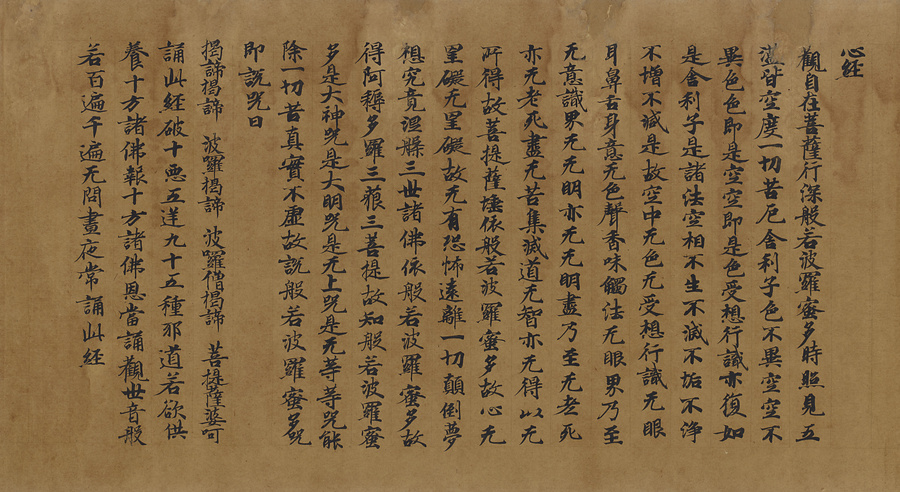 心経
觀自在菩薩行深般若波羅蜜多時照見五
蘊皆空度一切苦厄舍利子色不異空空不
異色色即是空空即是色受想行識亦復如
是舍利子是諸法空相不生不滅不垢不浄
不增不減是故空中无色无受想行識无眼
耳鼻舌身意无色聲香味觸法无眼界乃至
无意識界无无明亦无无明盡乃至无老死
亦无老死盡无苦集滅道无智亦无得以无
所得故菩提薩埵依般若波羅蜜多故心无
罣礙无罣礙故无有恐怖遠離一切顛倒夢
想究竟涅槃三世諸佛依般若波羅蜜多故
得阿耨多羅三藐三菩提故知般若波羅蜜
多是大神咒是大明咒是无上咒是无等等咒能
除一切苦真實不虛故說般若波羅蜜多咒
即說咒曰
揭諦揭諦 波羅揭諦 波囉僧揭諦 菩提薩婆呵
誦此經破十惡五逆九十五種邪道若欲供
養十方諸佛報十方諸佛恩當誦觀世音般
若百遍千遍无問晝夜常誦此経